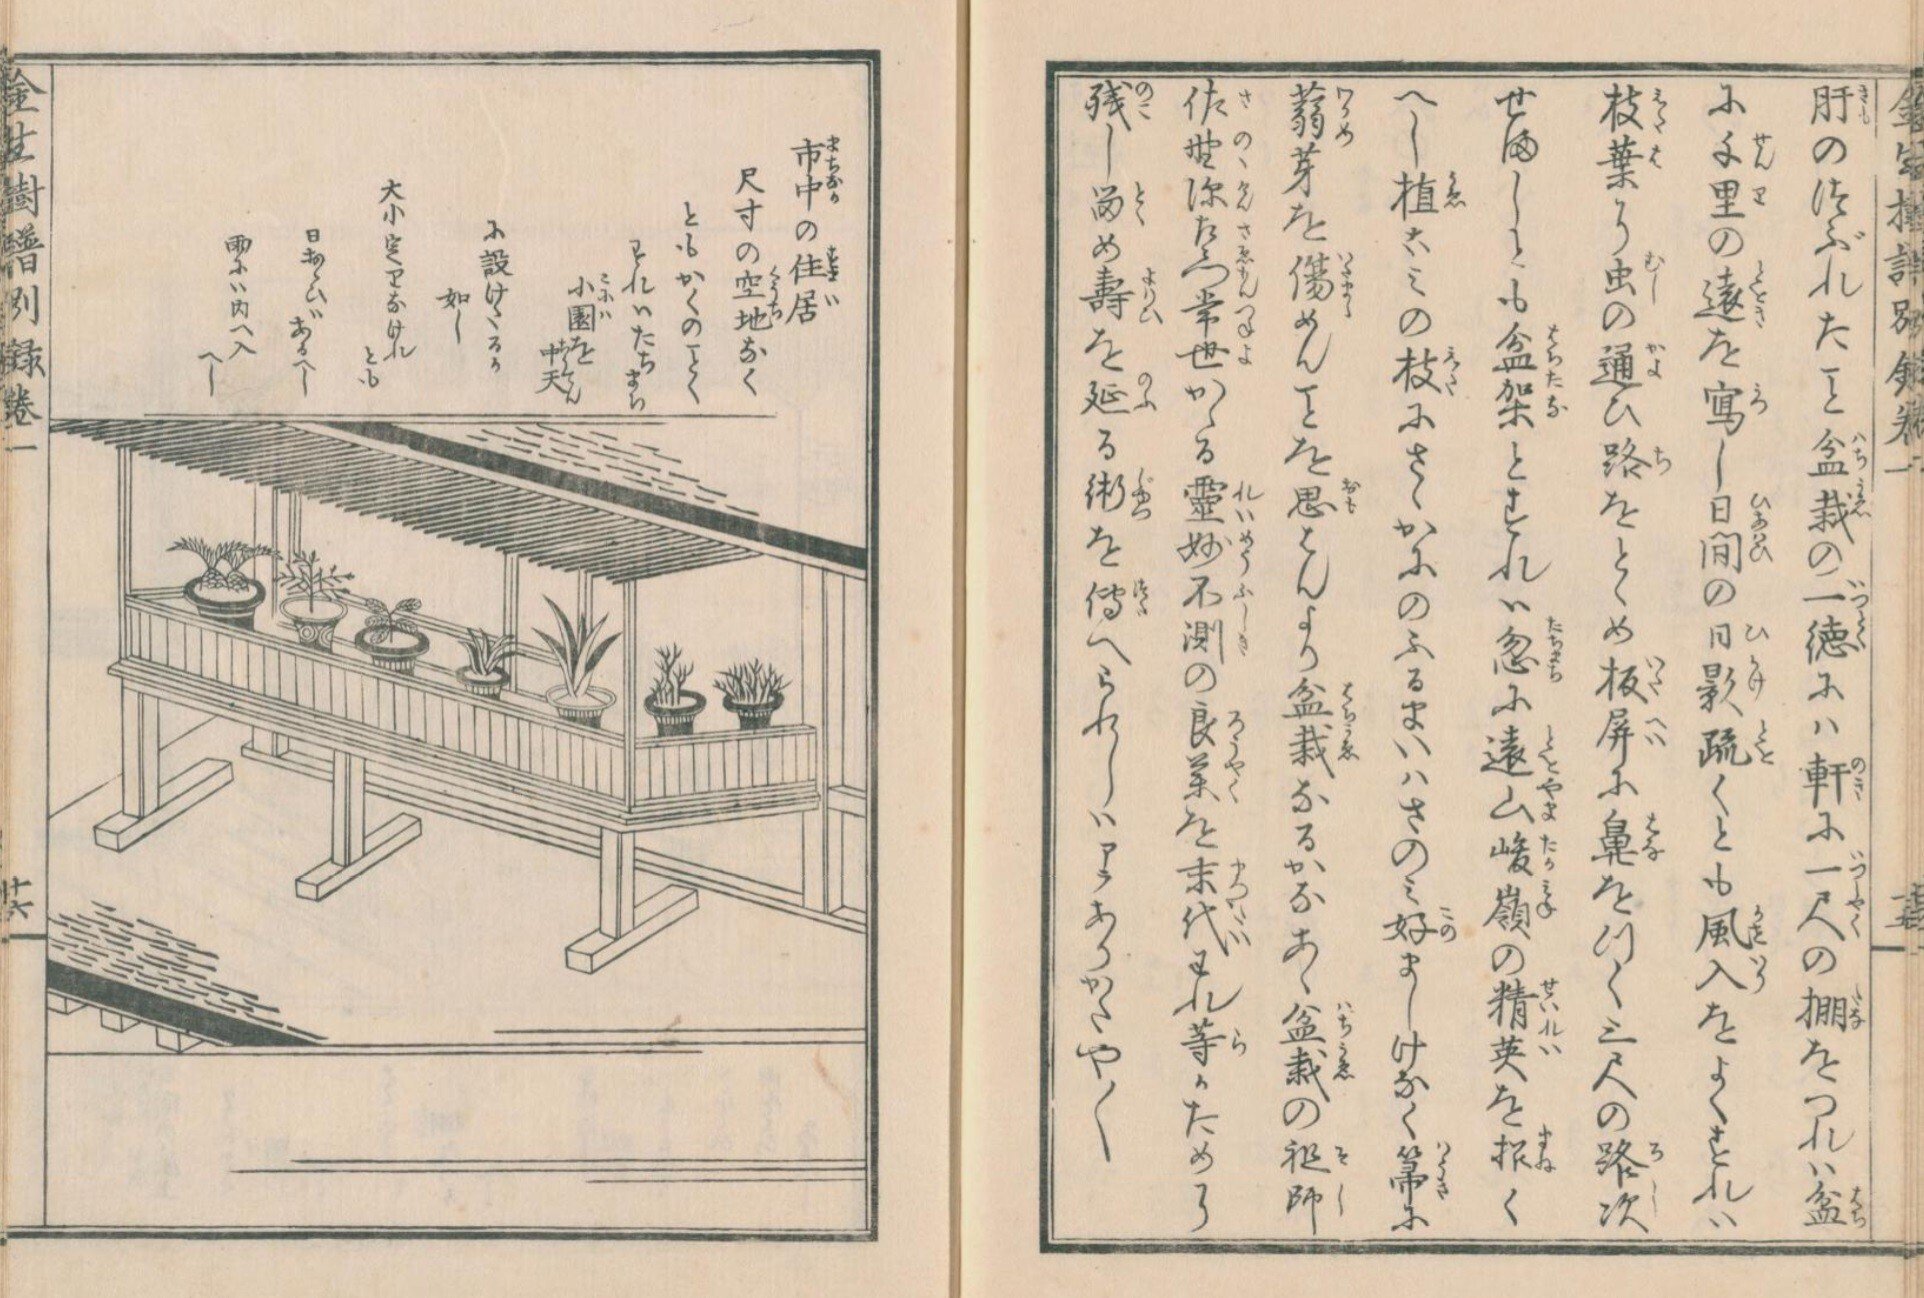 肝のつぶれたこと盆栽の一徳にハ軒に一尺の棚をつれハ盆
に千里の遠を寫し日間の日影疏くとも風入をよくすれハ
枝葉より虫の通ひ路をとゝめ板屏に鼻をつく三尺の路次
せましとも盆架とすれハ忽に遠山峻嶺の精英を招く
へし植こミの枝にさゝかにのふるまいハさのミ好ましけなく箒に
蘙芽を傷めんことを思はんより盆栽なるかなあゝ盆栽の祖師
佐野源左衛門常世かゝる靈妙不測の良薬を末代われ等かためら
残し留め壽を延る術を傳へられしハアラありかたや〳〵
金生樹譜別録卷一
市中の住居
尺寸の空地なく
ともかくのことく
すれハたちまち
小園を中天
に設けたるか
如し
大小定りなけれ
とも
日おゝひあるへし
雨にハ内へ入
へし
金生樹譜別録卷一
十六